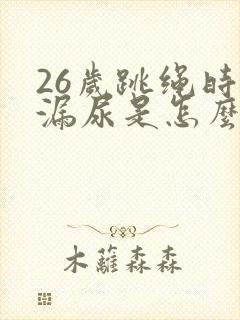 26歲跳绳時
漏尿是怎麼
木蘿森森